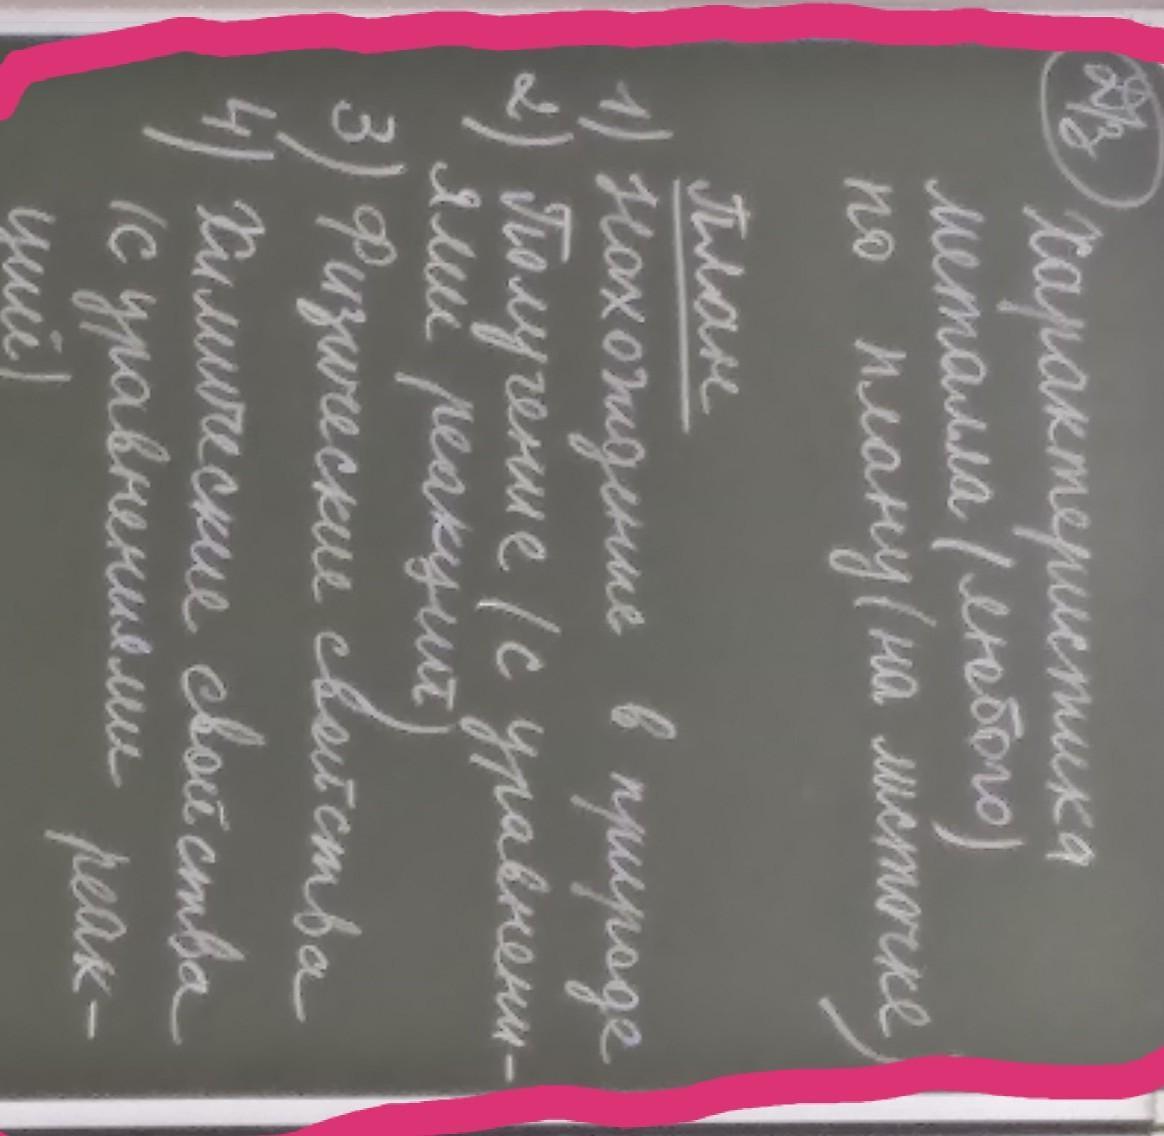 Д/з
Характеристика
металла (любого)
по плану (на листочке)
План
1) Нахождение в природе
2) Получение (с уравнени-
ями реакций)
3) Физические свойства
4) Химические свойства
(с уравнениями реак-
ций)